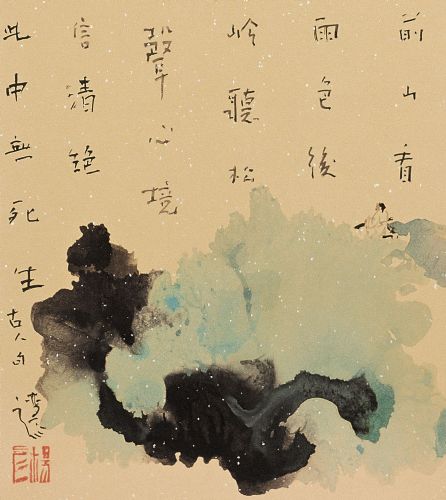 前山看
雨色後
岭聽松
聲心境
信清絶
此中無死
生古人句